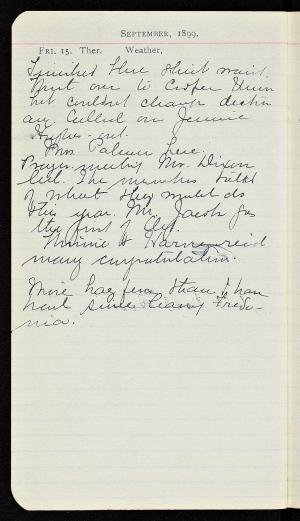 SEPTEMBER, 1899.
FRI. 15. Ther. Weather,
Finished blue shirt waist.
Went over to Cooper Union
but couldnt change diction
ary. Called on Jennie
Hughes - out.
Mrs. Palmer here.
Prayer-meeting Mr. Dixon
led. The members talked
of what they would do
this year. Mr. Jacobs for
the first of
Minnie & Harry
many congratulations.
More hay fever than I have
had since leaving Fredo-
nia.